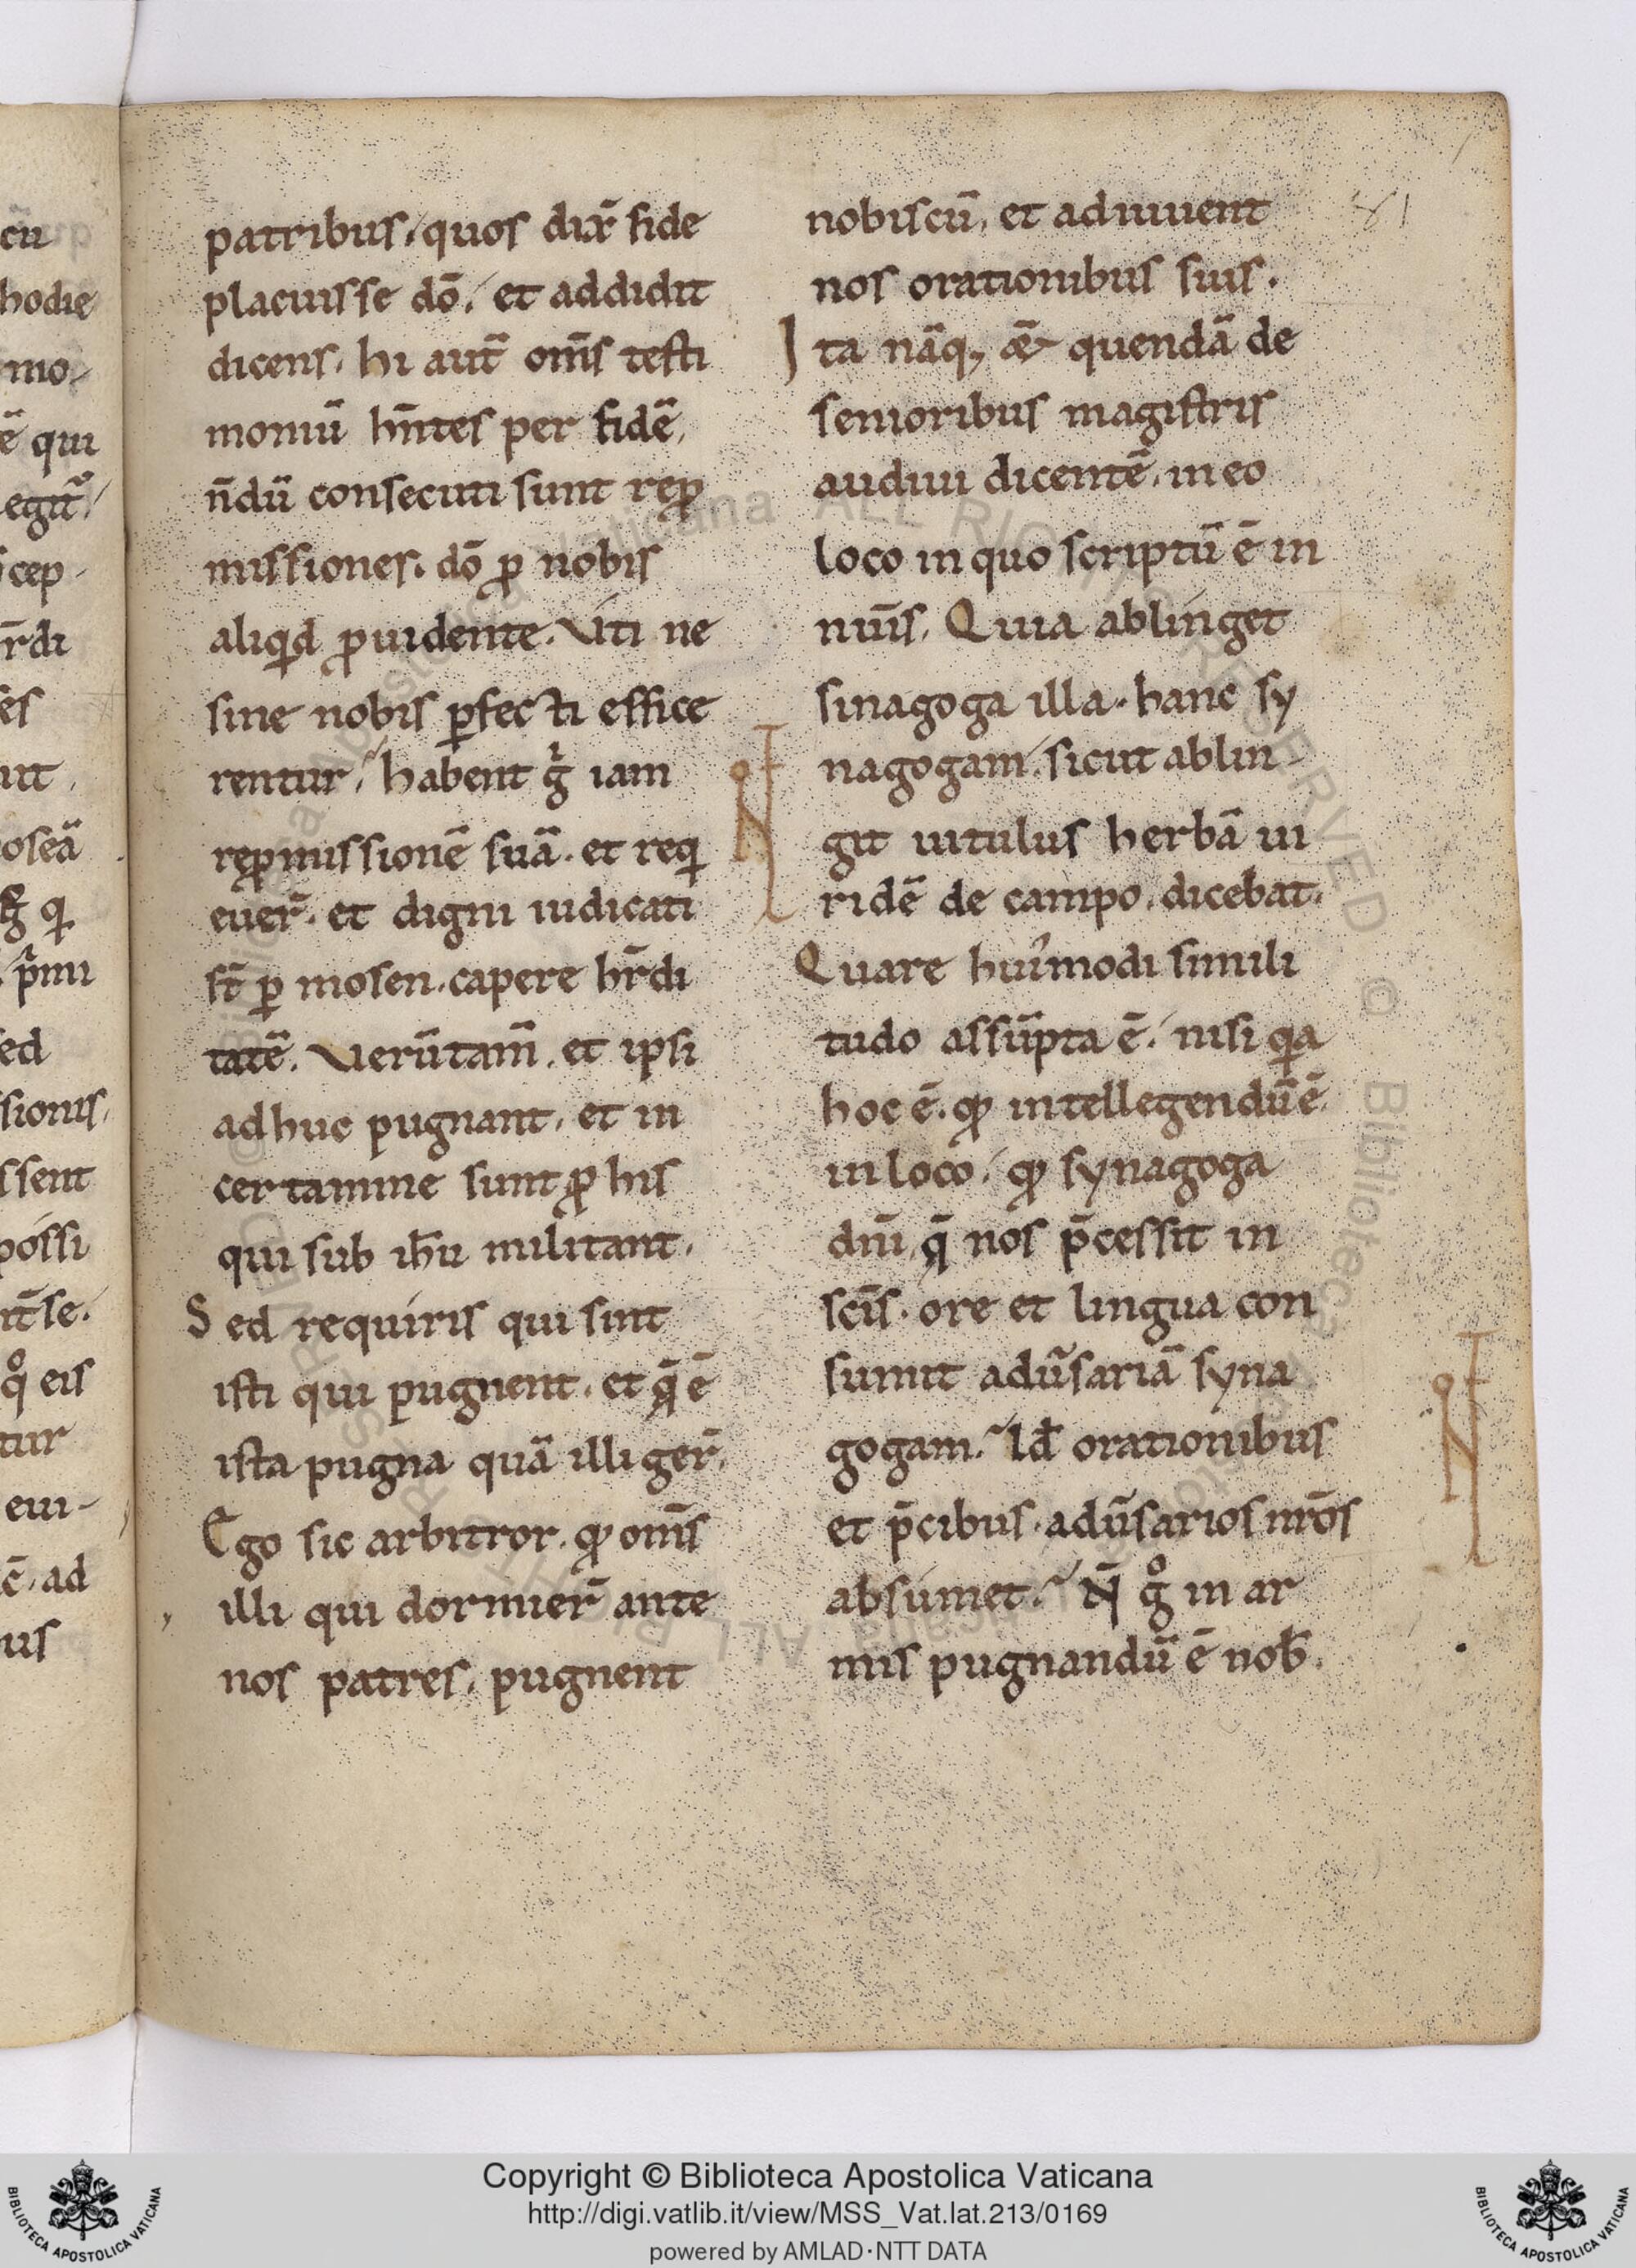 patribus, quos dix̄ fide
placuisse dō, et addidit
dicens. hi aut̄ om̄s testi
moniū hn̄tes per fidē,
n̄dū consecuti sunt rep̱ꝓ
missiones. dō ꝓ nobis
aliqͥd ꝓuidente. Uti ne
sine nobis ꝑfecti effice
rentur, habent gͥ iam
reꝓmissionē suā. et reqͥ
euer̄. et digni iudicati
st̄ ꝑ mosen. capere hr̄di
tatē. Uerūtam̄. et ipsi
adhuc pugnant. et in
certamine sunt ꝓ his
qui sub ih̄u militant.
Sed requiris qui sint
isti qui pugnent. et q̄ ē
ista pugna quā illi ger̄.
Ego sic arbitror. qđ om̄s
illi qui dormier̄ ante
nos patres. pugnent
nobiscū, et adiuuent
nos orationibus suis.
Ita nāq, & quendā de
senioribus magistris
audiui dicentē. in eo
loco in quo scriptū ē in
nūis. Quia ablinget
sinagoga illa. hanc sy
nagogam. sicut ablin-
git uitulus herbā ui
ridē de campo. dicebat.
Quare hui9modi simili
tudo assūpta ē. nisi qͥa
hoc ē. qđ intellegendū ē
in loco. qđ synagoga
dn̄i, q̄ nos p̄cessit in
sc̄is. ore et lingua con
sumit adūsariā syna
gogam. Id ē orationibus
et p̄cibus. adūsarios nr̄os
absumet. N̄ gͦ in ar
mis pugnandū ē nob̄.
81
cū
hodie
mo-
ē qui
cep-
r̄di
ut
oseā
p̄mi
ed
sionis,
ssent
possi
nt̄ se.
qͦ eis
tur
eui-
c̄. ad
us
Copyright © Biblioteca Apostolica Vaticana
http://digi.vatlib.it/view/MSS_Vat.lat.213/0169
powered by AMLAD·NTT DATA
BIBLIOTECA APOSTOLICA VATICANA
BIBLIOTECA APOSTOLICA VATICANA